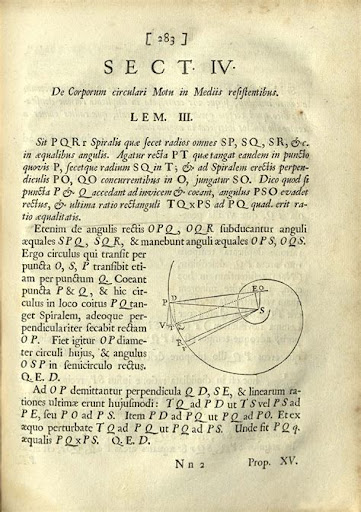 [ 283 ]
SECT. IV.
De Corporum circulari Motu in Mediis resistentibus.
LEM. III.
Sit PQRr Spiralis quæ secet radios omnes SP, SQ, SR, &c.
in æqualibus angulis. Agatur recta PT quæ tangat eandem in puncto
quovis P, secetque radium SQ in T; & ad Spiralem erectis perpen-
diculis PO, QO concurrentibus in O, jungatur SO. Dico quod si
puncta P & Q accedant ad invicem & coeant, angulus PSO evadet
rectus, & ultima ratio rectanguli TQxPS ad PQ quad. erit ra-
tio æqualitatis.
Etenim de angulis rectis OPQ, OQR subducantur anguli
æquales SPQ, SQR, & manebunt anguli æquales OPS, OQS.
Ergo circulus qui transit per
puncta O, S, P transibit eti-
am per punctum Q. Coeant
puncta P & Q, & hic cir-
culus in loco coitus PQ tan-
get Spiralem, adeoque per-
pendiculariter secabit rectam
OP. Fiet igitur OP diame-
ter circuli hujus, & angulus
OSP in semicirculo rectus.
Q. E. D.
E O
P D
S
V T Q
R
r
Ad OP demittantur perpendicula QD, SE, & linearum ra-
tiones ultimæ erunt hujusmodi: TQ ad PD ut TS vel PS ad
PE, seu PO ad PS. Item PD ad PQ ut PQ ad PO. Et ex
æquo perturbate TQ ad PQ ut PQ ad PS. Unde fit PQ q.
æqualis PQxPS. Q. E. D.
Nn 2 Prop. XV.